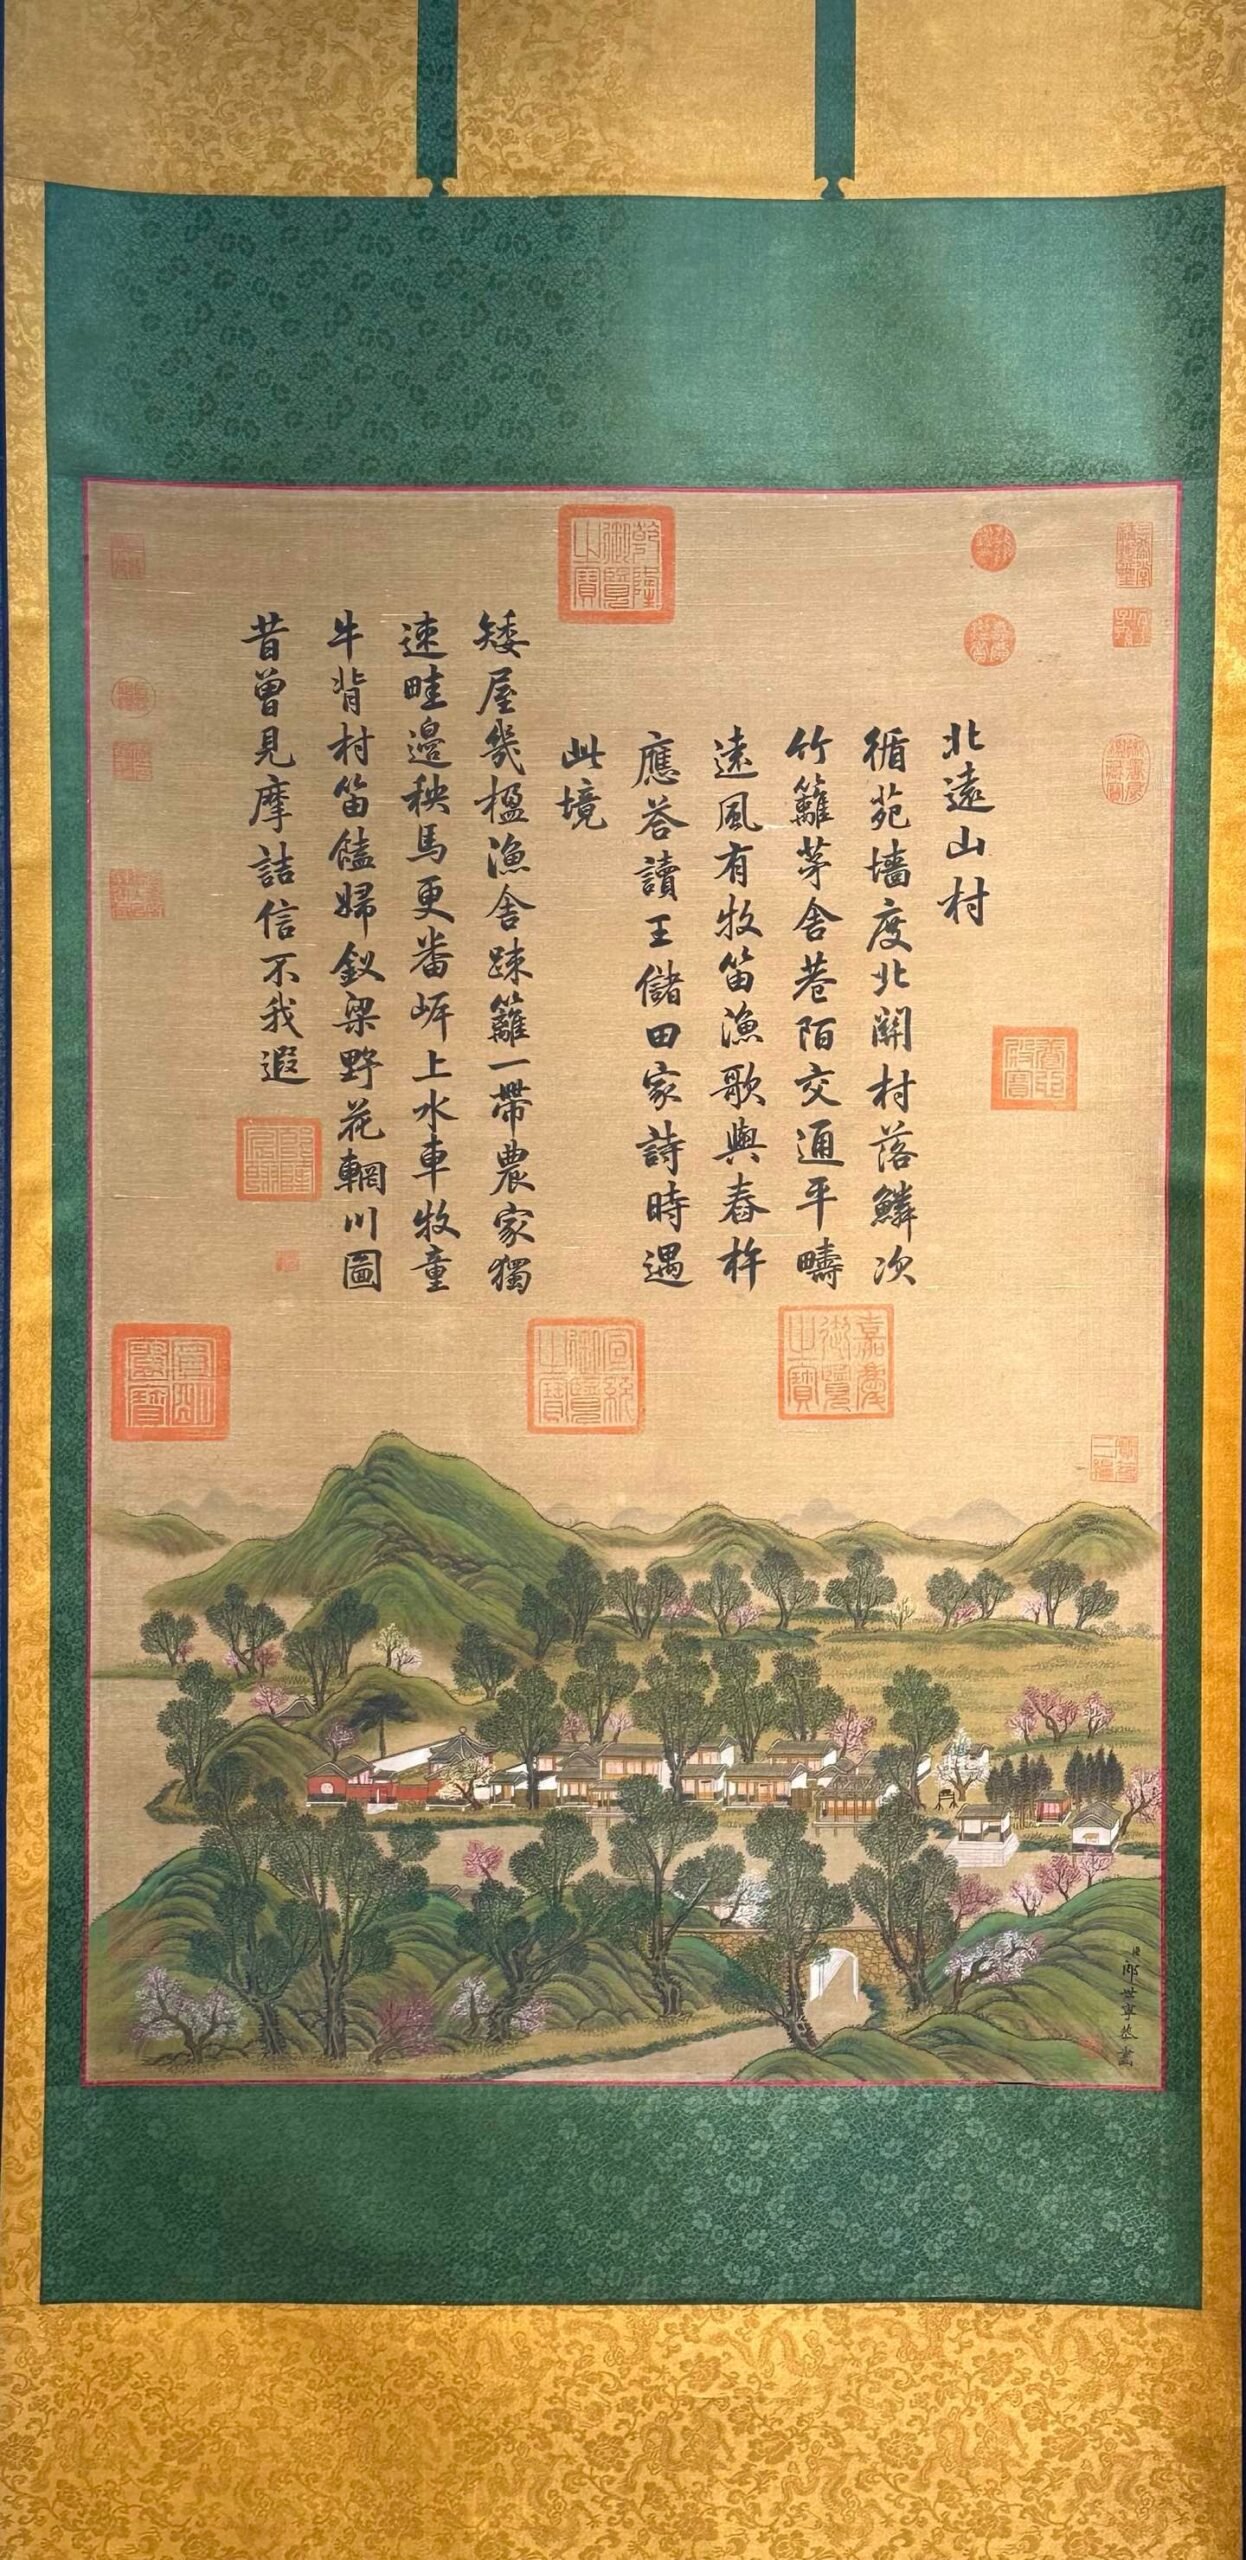 北遠山村
循苑墻度北關村落鱗次
竹籬茅舍巷陌交通平疇
遠風有牧笛漁歌與舂杵
應答讀王儲田家詩時遇
此境
矮屋幾楹漁舍踈籬一帶農家獨
速畦邊秧馬更番岸上水車牧童
牛背村笛饁婦釵梁野花輞川圖
昔曾見摩詰信不我遐
乾隆御覽之寶
嘉慶御覽之寶
宣統御覽之寶
郎世寧恭畫